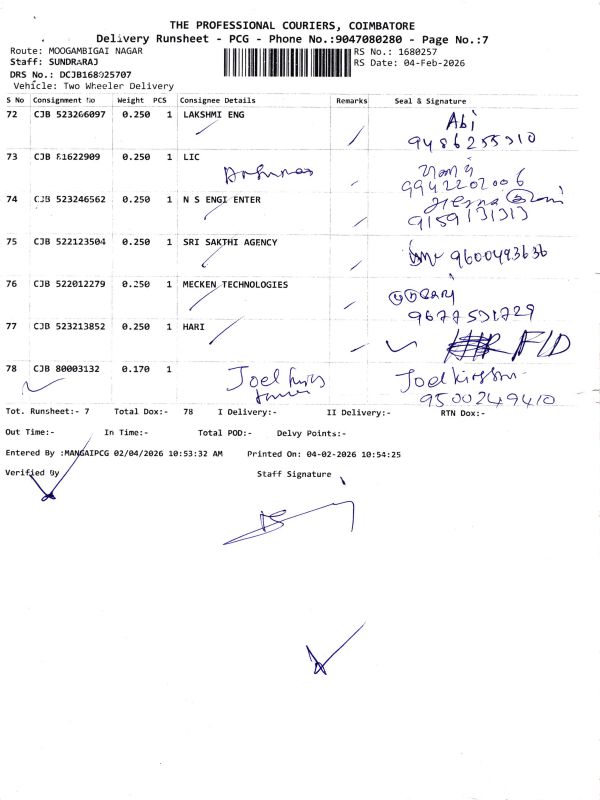 THE PROFESSIONAL COURIERS, COIMBATORE
Delivery Runsheet - PCG - Phone No.:9047080280 - Page No.:7
Route: MOOGAMBIGAI NAGAR RS No.: 1680257
Staff: SUNDRARAJ RS Date: 04-Feb-2026
DRS No.: DCJB168025707
Vehicle: Two Wheeler Delivery
S No Consignment No Weight PCS Consignee Details Remarks Seal & Signature
72 CJB 523266097 0.250 1 LAKSHMI ENG Abi
9486255310
73 CJB 81622909 0.250 1 LIC
9942202006
74 CJB 523246562 0.250 1 N S ENGI ENTER
9159131313
75 CJB 522123504 0.250 1 SRI SAKTHI AGENCY 9600493636
76 CJB 522012279 0.250 1 MECKEN TECHNOLOGIES
9677531729
77 CJB 523213852 0.250 1 HARI F/D
78 CJB 80003132 0.170 1 Joel
9500249410
Tot. Runsheet:- 7 Total Dox:- 78 I Delivery:- II Delivery:- RTN Dox:-
Out Time:- In Time:- Total POD:- Delvy Points:-
Entered By :MANGAIPCG 02/04/2026 10:53:32 AM Printed On: 04-02-2026 10:54:25
Verified By Staff Signature